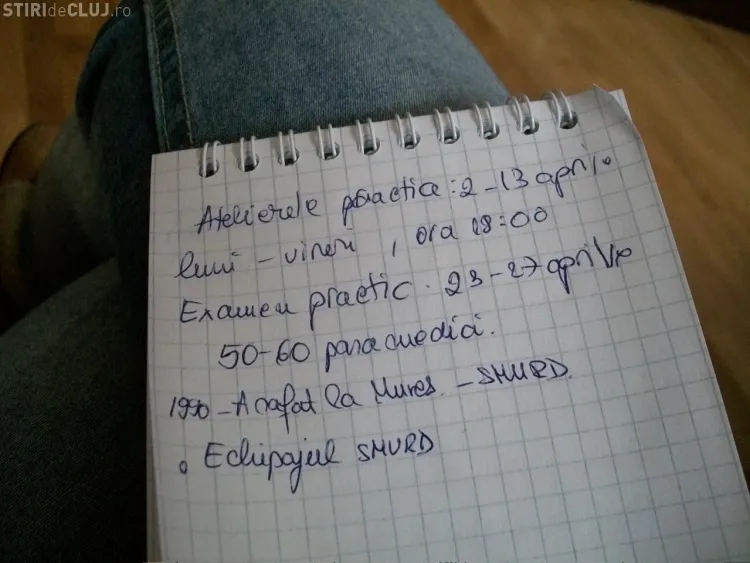 STIRIdeCLUJ.ro
Atelierele practice: 2-13 aprilie
luni - vineri , ora 18:00
Examen practic. 23-27 aprilie
50-60 paramedici.
1990 - Arafat la Mures. - SMURD.
Echipajul SMURD